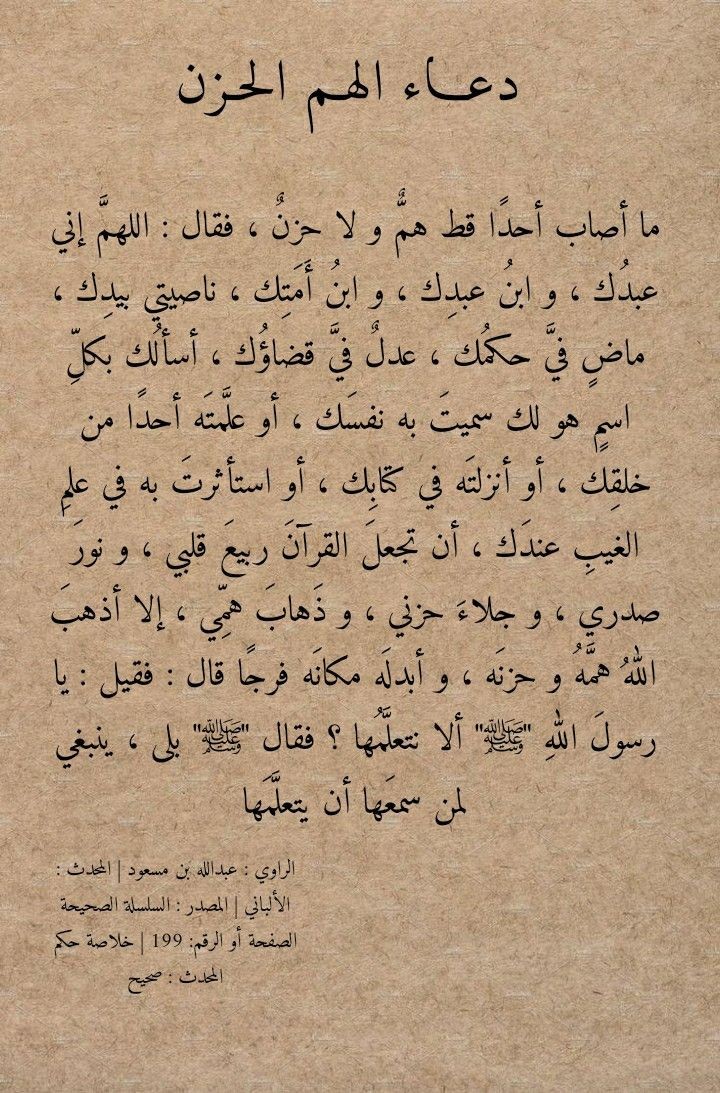 دعـــاء الهـم الحـزن
ما أصاب أحدًا قط همٌّ و لا حزنٌ ، فقال : اللهمَّ إني
عبدُك ، و ابنُ عبدِك ، و ابنُ أَمَتِك ، ناصيتي بيدِك ،
ماضٍ فيَّ حكمُك ، عدلٌ فيَّ قضاؤُك ، أسألُك بكلِّ
اسمٍ هو لك سميتَ به نفسَك ، أو علَّمتَه أحدًا من
خلقِك ، أو أنزلتَه في كتابِك ، أو استأثرتَ به في علمِ
الغيبِ عندَك ، أن تجعلَ القرآنَ ربيعَ قلبي ، و نورَ
صدري ، و جلاءَ حزني ، و ذَهابَ همِّي ، إلا أذهبَ
اللهُ همَّهُ و حزنَه ، و أبدلَه مكانَه فرجًا قال : فقيل : يا
رسولَ اللهِ "ﷺ" ألا نتعلَّمُها ؟ فقال "ﷺ" بلى ، ينبغي
لمن سمعَها أن يتعلَّمَها
الراوي : عبدالله بن مسعود | المحدث :
الألباني | المصدر : السلسلة الصحيحة
الصفحة أو الرقم: 199 | خلاصة حكم
المحدث : صحيح